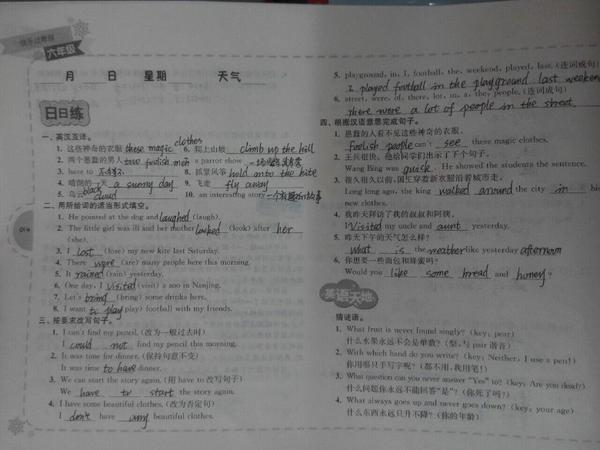 快乐过暑假
六年级
月 日 星期 天气
日日练
一. 英汉互译。
1. 这些神奇的衣服 these magic clothes
2. 两个愚蠢的男人 two foolish men
3. have to 不得不
4. 晴朗的一天 a sunny day
5. 乌云 black cloud
6. 爬上山坡 climb up the hill
7. a parrot show 一场鹦鹉表演
8. 抓紧风筝 hold onto the kite
9. 飞走 fly away
10. an interesting story 一个有趣的故事
二. 用所给词的适当形式填空。
1. He pointed at the dog and laughed (laugh).
2. The little girl was ill and her mother looked (look) after her
(she).
3. I lost (lose) my new kite last Saturday.
4. There were (are) many people here this morning.
5. It rained (rain) yesterday.
6. One day, I visited (visit) a zoo in Nanjing.
7. Let's bring (bring) some drinks here.
8. I want to play (play) football with my friends.
三. 按要求改写句子。
1. I can't find my pencil. (改为一般过去时)
I could not find my pencil this morning.
2. It was time for dinner. (保持句意不变)
It was time to have dinner.
3. We can start the story again. (用 have to 改写句子)
We have to start the story again.
4. I have some beautiful clothes. (改为否定句)
I don't have any beautiful clothes.
5. playground, in, I, football, the, weekend, played, last, (连词成句)
I played football in the playground last weekend
6. street, were, of, there, lot, in, a, the, people, (连词成句)
There were a lot of people in the street.
四. 根据汉语意思完成句子。
1. 愚蠢的人看不见这些神奇的衣服。
Foolish people can't see these magic clothes.
2. 王兵很快。他给同学们出示了下个句子。
Wang Bing was quick. He showed the students the sentence.
3. 很久很久以前,国王穿着新衣服沿着城市走。
Long long ago, the king walked around the city in his
new clothes.
4. 我昨天拜访了我的叔叔和阿姨。
I Visited my uncle and aunt yesterday.
5. 昨天下午的天气怎么样?
what is the weather like yesterday afternoon
6. 你想要一些面包和蜂蜜吗?
Would you like some bread and honey?
英语天地
猜谜语。
1. What fruit is never found singly? (key: pear)
什么水果永远不会是单数? (梨,与 pair 谐音)
2. With which hand do you write? (key: Neither, I use a pen!)
你用哪只手写字呢? (都不用,我用笔!)
3. What question can you never answer "Yes" to? (key: Are you dead?)
什么问题你永远不能回答"是"? (你死了吗?)
4. What always goes up and never goes down? (key: your age)
什么东西永远只升不降? (你的年龄)